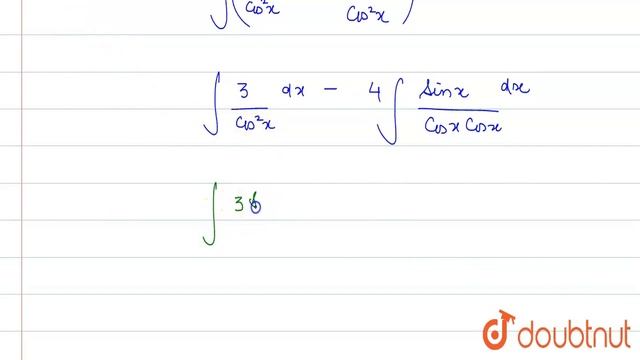 ∫( cos²x cos²x )
∫ 3/cos²x dx - 4 ∫ sinx dx/cosx cosx
∫ 3
doubtnut